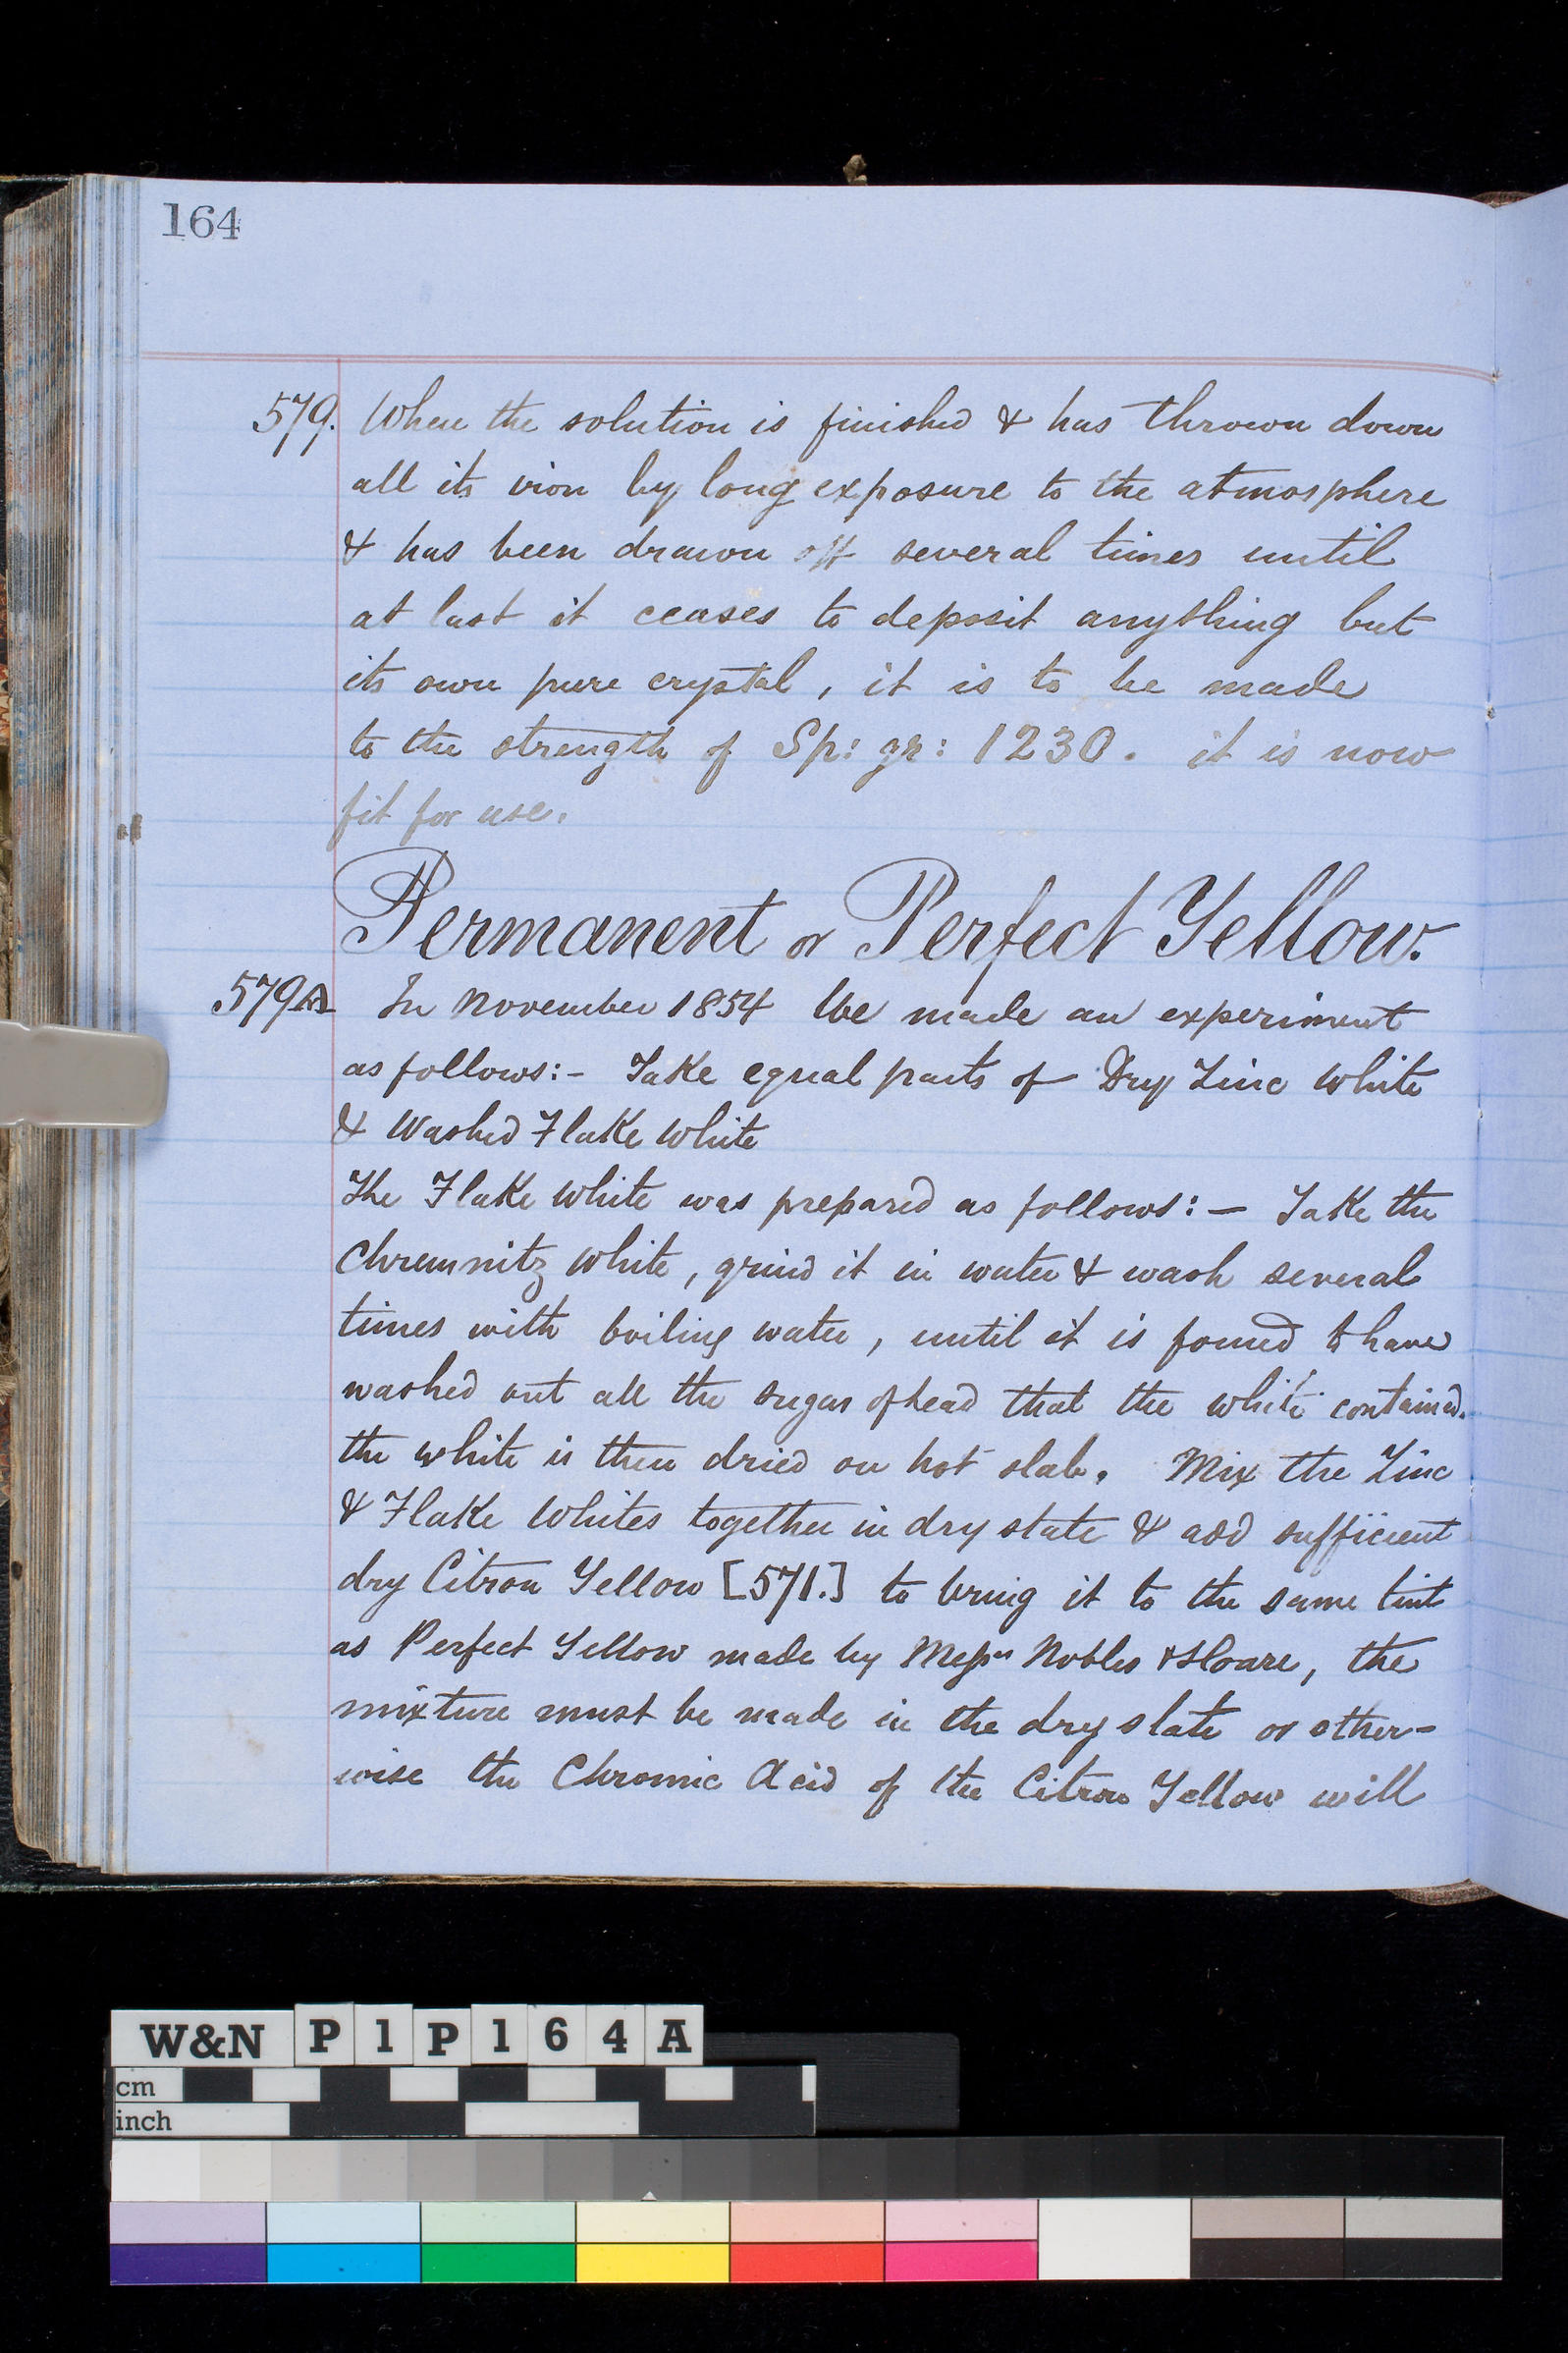 164
579. When the solution is finished & has thrown down
all its iron by long exposure to the atmosphere
& has been drawn off several times until
at last it ceases to deposit anything but
its own pure crystal, it is to be made
to the strength of Sp: gr: 1230. it is now
fit for use.
Permanent or Perfect Yellow.
579A In November 1854 We made an experiment
as follows:- Take equal parts of Dry Zinc White
& Washed Flake White
The Flake White was prepared as follows:- Take the
Chremnitz White, grind it in water & wash several
times with boiling water, until it is found to have
washed out all the sugar of lead that the white contained.
the white is then dried on hot slab. Mix the Zinc
& Flake Whites together in dry state & add sufficient
dry Citron Yellow [571.] to bring it to the same tint
as Perfect Yellow made by Messrs Nobles & Hoare, the
mixture must be made in the dry state or other-
wise the Chromic Acid of the Citron Yellow will
W&N P1P164A
cm
inch